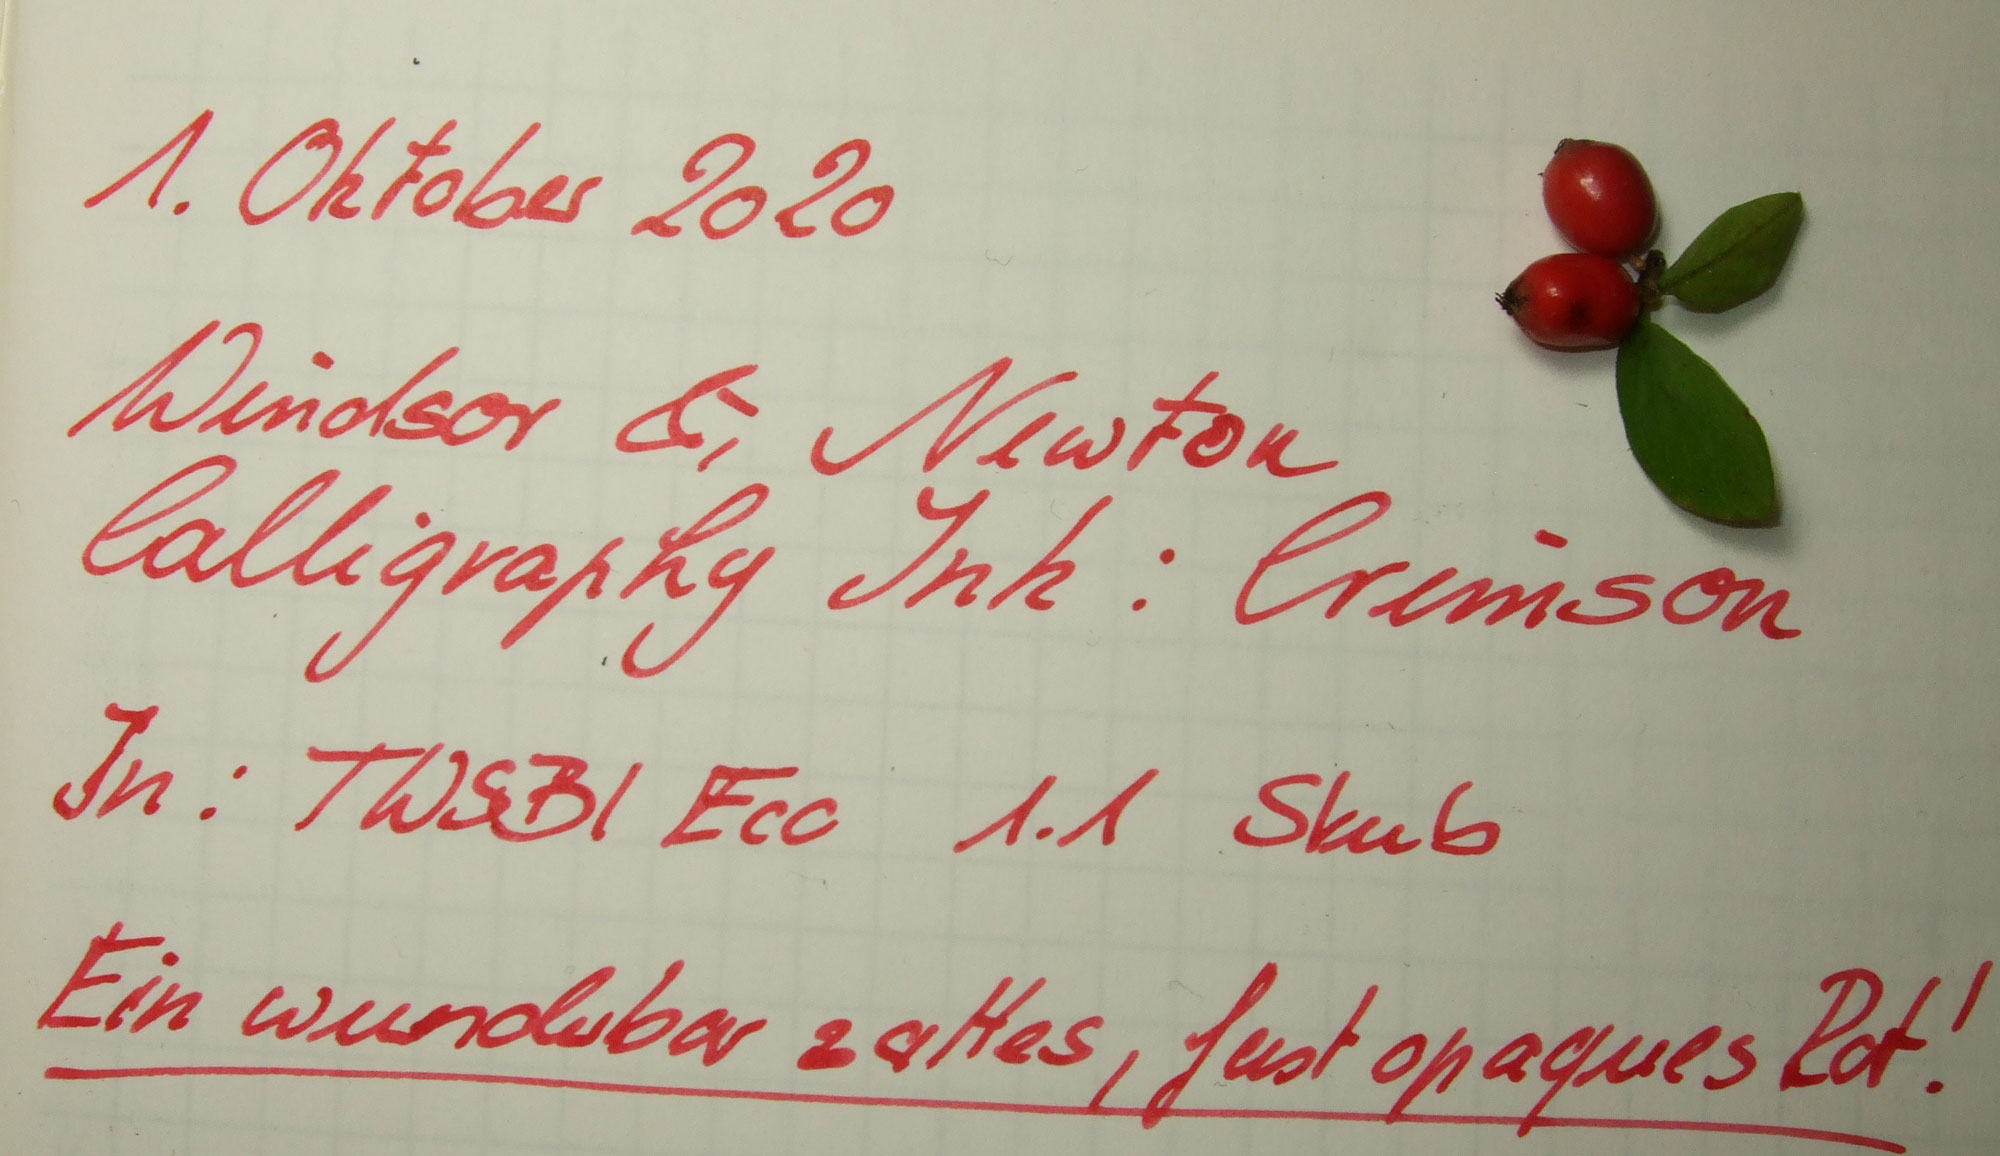 1. Oktober 2020
Windsor & Newton
Calligraphy Ink : Crimson
In : TWSBI Eco 1.1 Stub
Ein wunderbar sattes, fast opaques Rot!